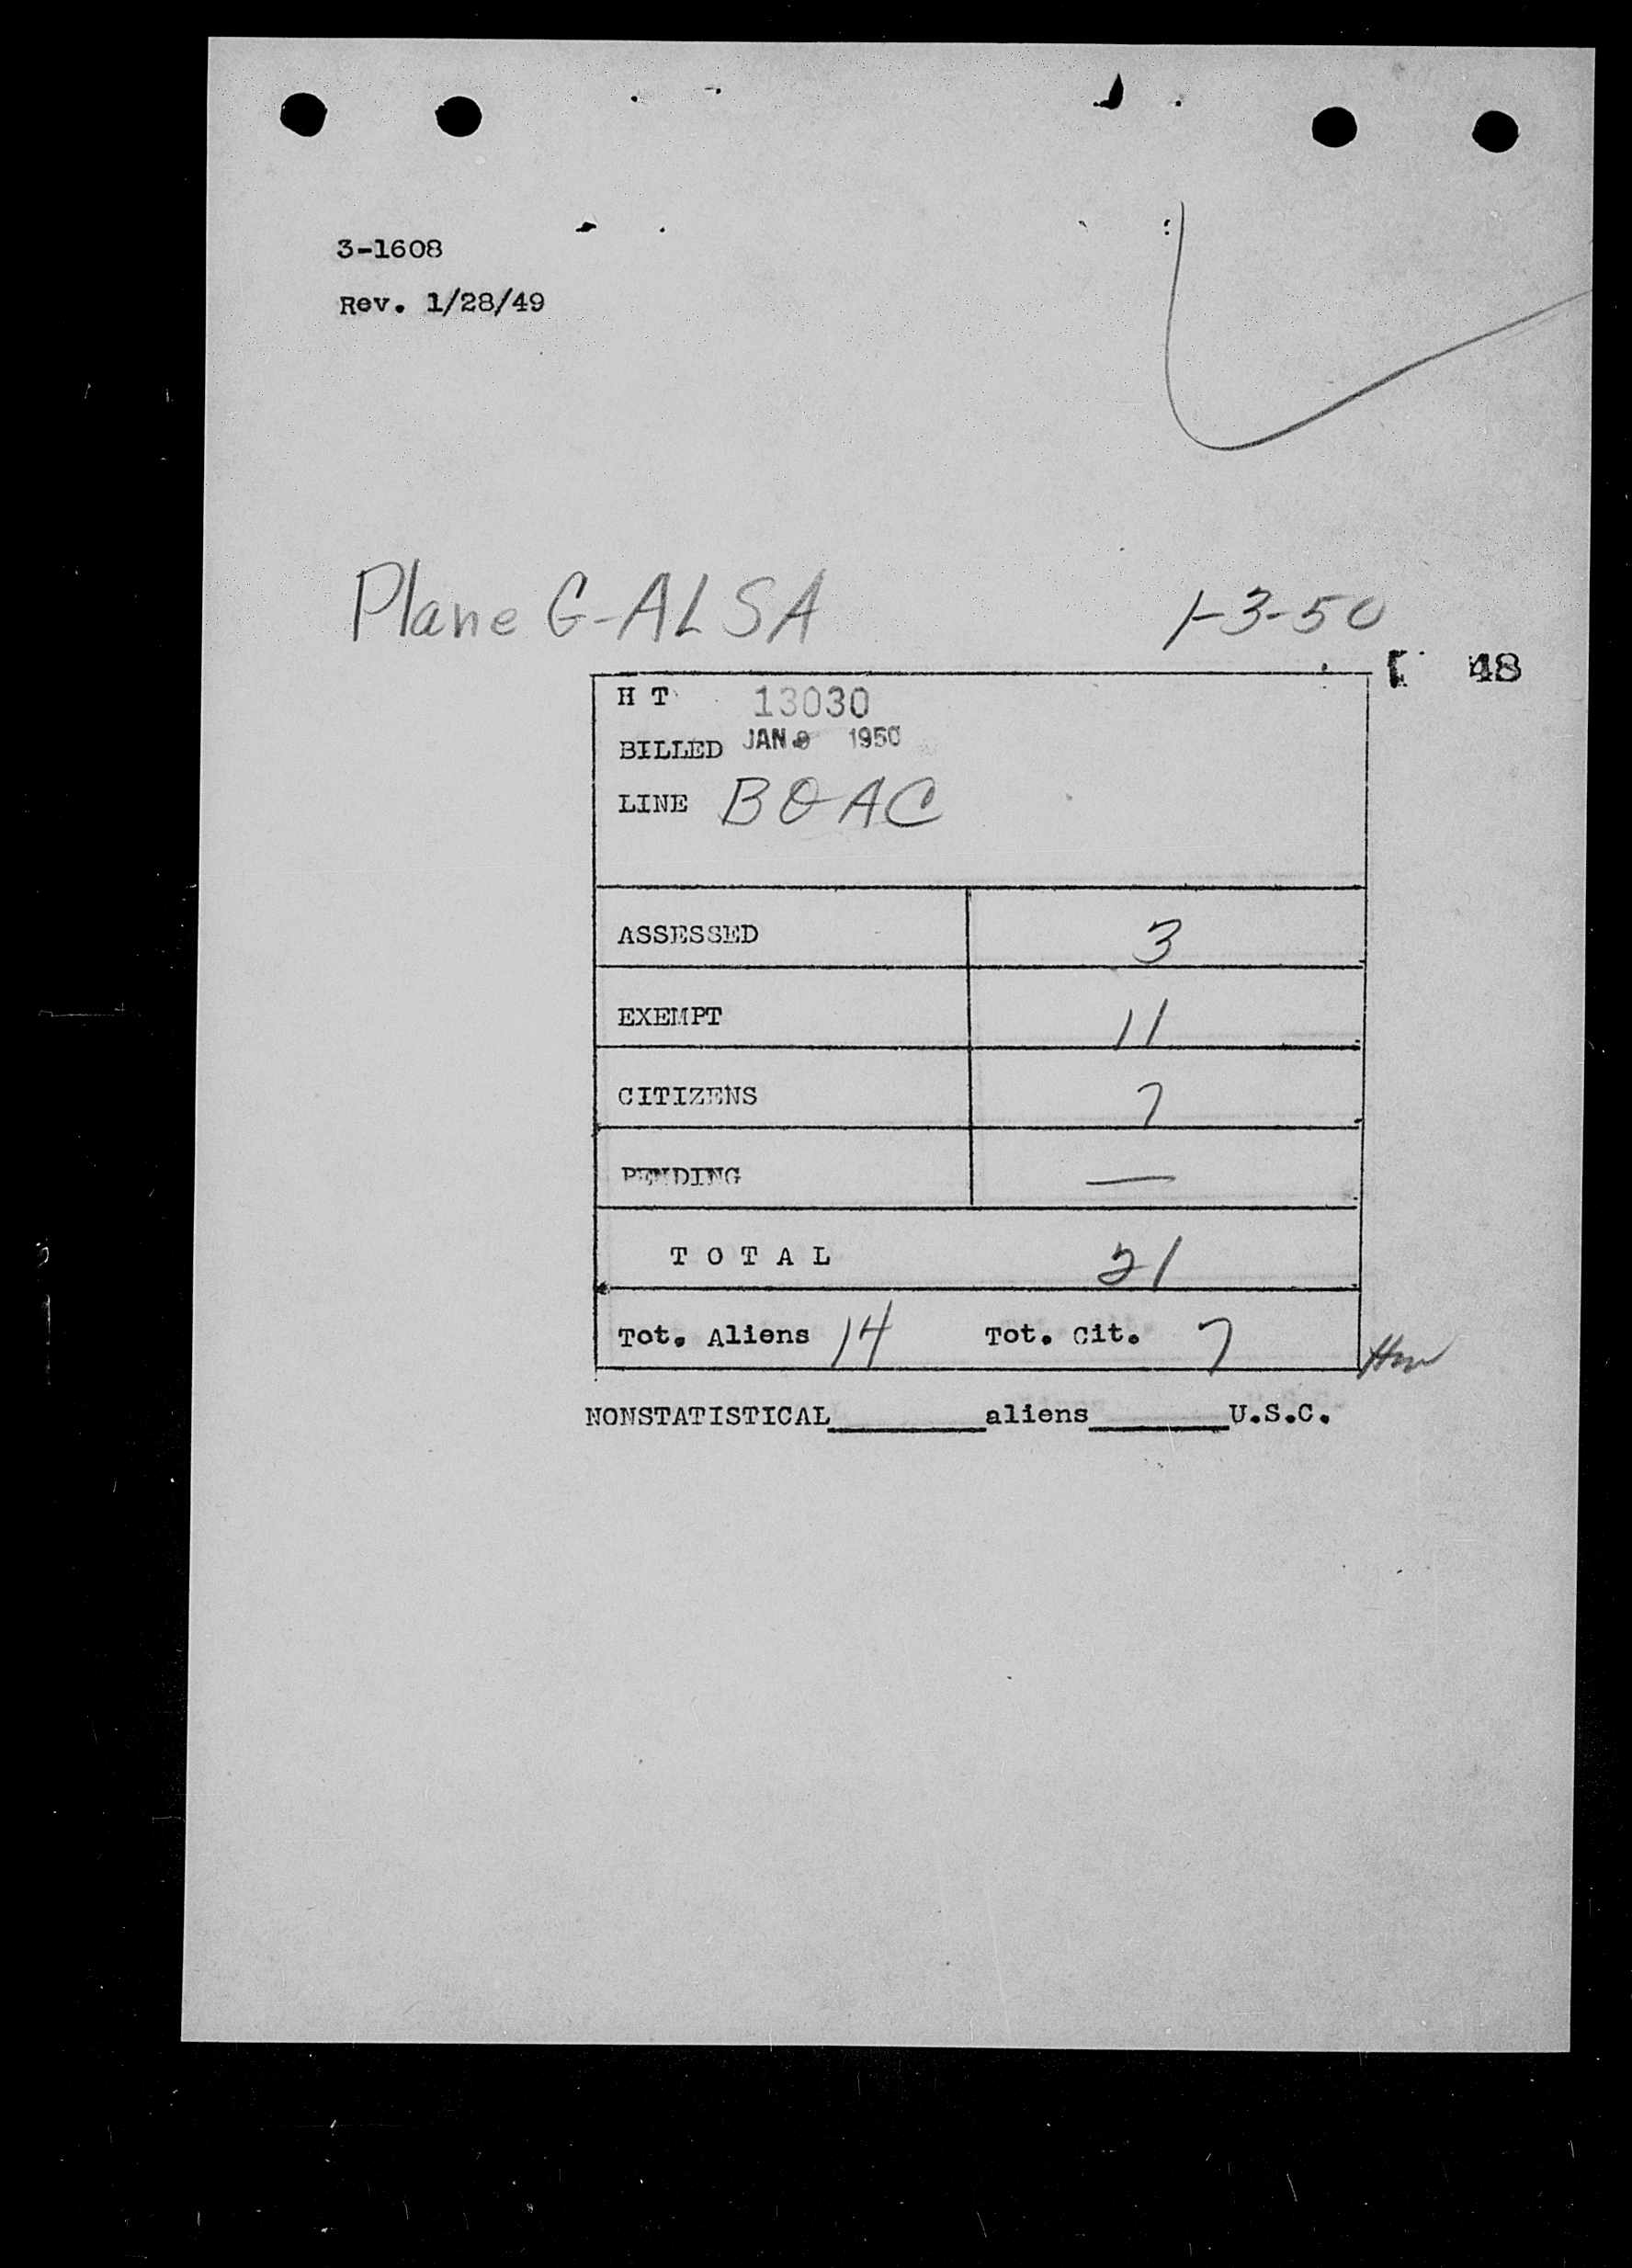 3-1608
Rev. 1/28/49
Plane G-ALSA 1-3-50
48
H T 13030
BILLED JAN 9 1950
LINE BOAC
ASSESSED 3
EXEMPT 11
CITIZENS 7
PENDING —
T O T A L 21
Tot. Aliens 14 Tot. Cit. 7
NONSTATISTICAL________aliens________U.S.C.